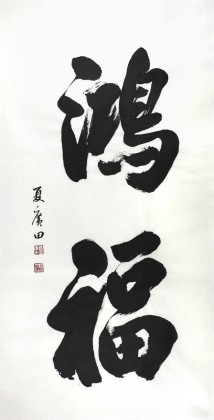 鴻福
夏廣田